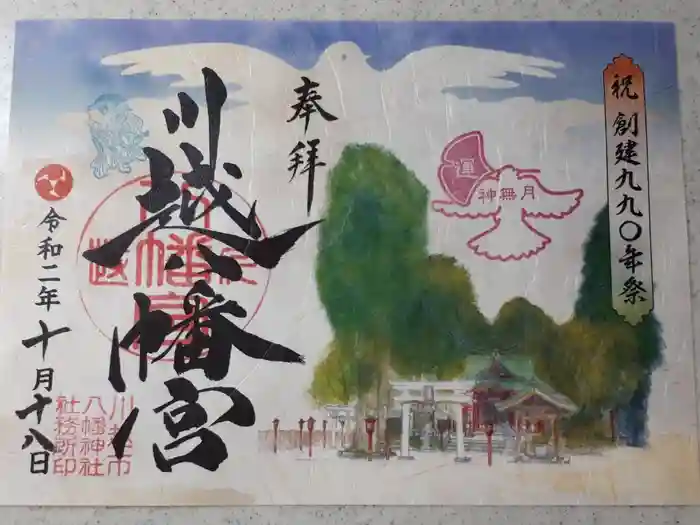 祝 創建九九〇年祭
運
神無月
奉拝
川越八幡宮
令和二年十月十八日
川越市
八幡神社
社務所印